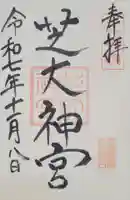 奉拝
芝大神宮
令和七年十二月八日